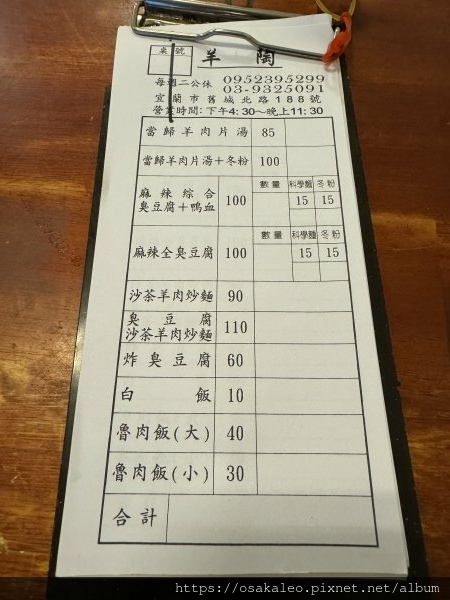 桌號
羊陶
每週二公休 0952395299
03-9325091
宜蘭市舊城北路188號
營業時間:下午4:30~晚上11:30
當歸羊肉片湯 85
當歸羊肉片湯+冬粉 100
麻辣綜合
臭豆腐+鴨血 100 數量 科學麵 冬粉
15 15
麻辣全臭豆腐 100 數量 科學麵 冬粉
15 15
沙茶羊肉炒麵 90
臭豆腐
沙茶羊肉炒麵 110
炸臭豆腐 60
白飯 10
魯肉飯(大) 40
魯肉飯(小) 30
合計
https://osakaleo.pixnet.net/album